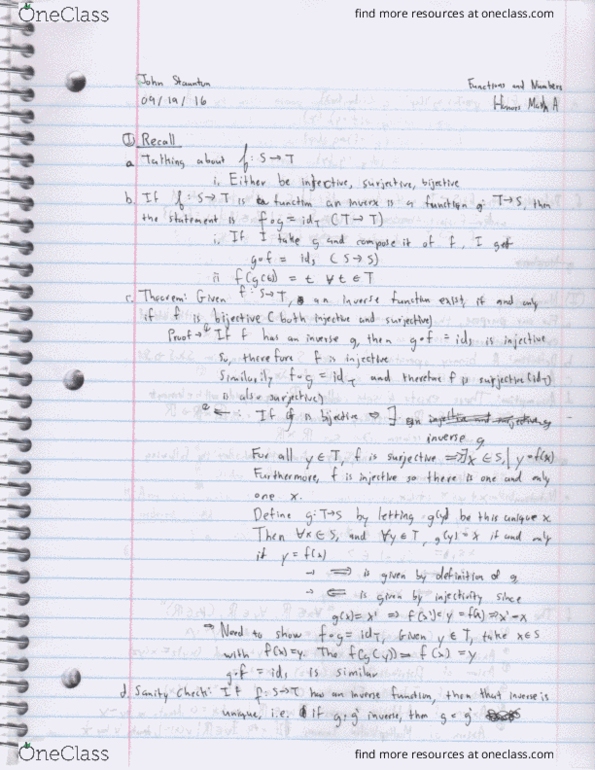 OneClass
find more resources at oneclass.com
John Staunton
Functions and Numbers
09/19/16
Honors Math A
① Recall
a. Talking about f: S→T
i. Either be injective, surjective, bijective
b. If f: S→T is a function an inverse is a function g: T→S, then
the statement is f∘g = id_T (T→T)
i. If I take g and compose it of f, I get
g∘f = id_S (S→S)
ii f(g(t)) = t ∀t∈T
c. Theorem: Given f: S→T, an inverse function exist, if and only
if f is bijective (both injective and surjective)
Proof → If f has an inverse g, then g∘f = id_S is injective
so, therefore f is injective
Similarily f∘g = id_T and therefore f is surjective (id_T)
is also surjective)
⇐: If f is bijective ⇒ ∃ an
inverse g
For all y∈T, f is surjective ⇒ ∃x∈S | y=f(x)
Furthermore, f is injective so there is one and only
one x.
Define g: T→S by letting g(y) be this unique x
Then ∀x∈S, and ∀y∈T, g(y)=x if and only
if y=f(x)
→ ⇒ is given by definition of g
→ ⇐ is given by injectivity since
g(x)=x' ⇒ f(x')=y=f(x) ⇒ x'=x
Need to show f∘g = id_T, Given y∈T, take x∈S
with f(x)=y. The f(g(y)) = f(x) = y
g∘f = id_S is similar
d. Sanity Check: If f: S→T has an inverse function, then that inverse is
unique, i.e. if g, g' inverse, then g = g'
OneClass
find more resources at oneclass.com